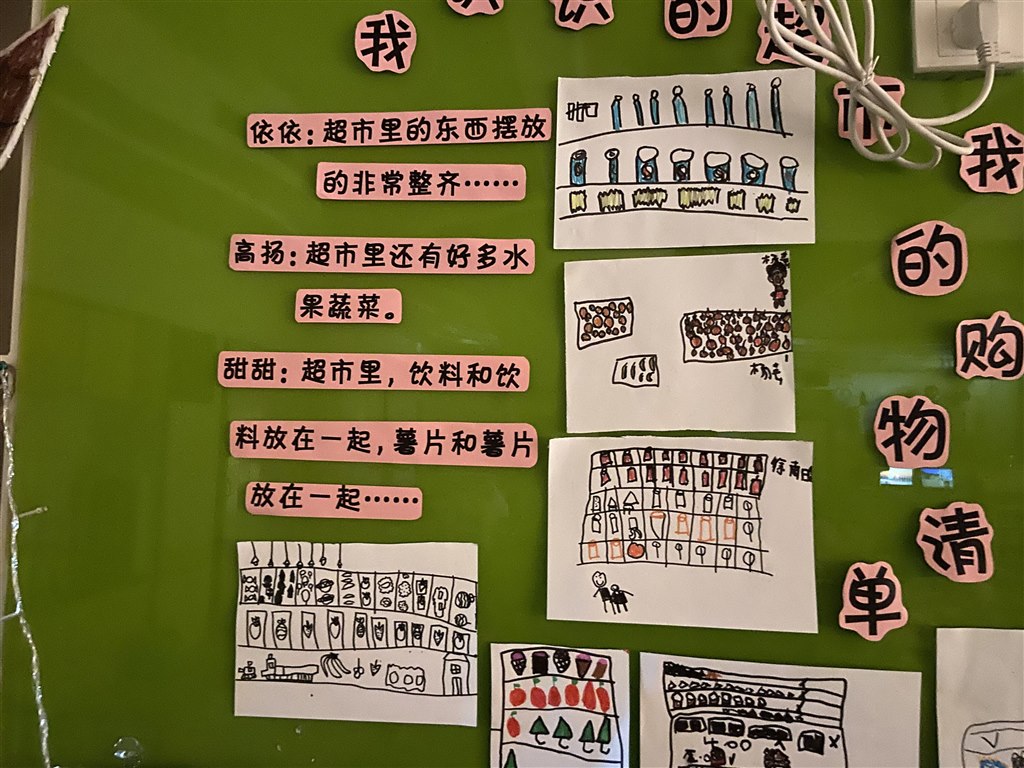 我 识 的 超 市
依依：超市里的东西摆放
的非常整齐……
高扬：超市里还有好多水
果蔬菜。
甜甜：超市里，饮料和饮
料放在一起，薯片和薯片
放在一起……
我的购物清单
400